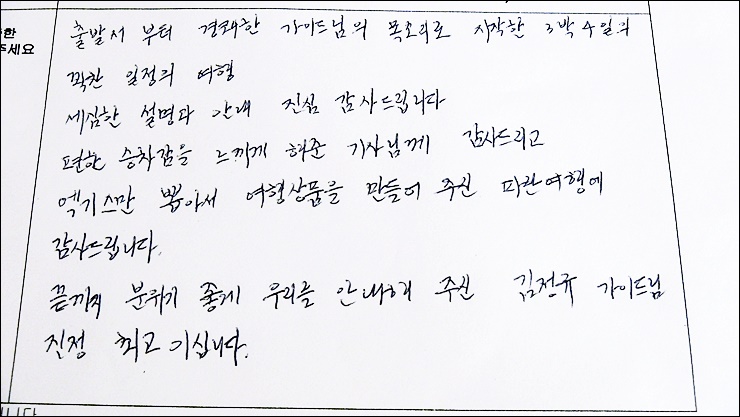 한
주세요
출발서 부터 경쾌한 가이드님의 목소리로 시작한 3박4일의
꽉찬 일정의 여행
세심한 설명과 안내 진심 감사드립니다
편한 승차감을 느끼게 해준 기사님께 감사드리고
엑기스만 뽑아서 여행상품을 만들어 주신 파란여행에
감사드립니다.
끝까지 분위기 좋게 우리를 안내해 주신 김정규 가이드님
진정 최고 이십니다.
니다